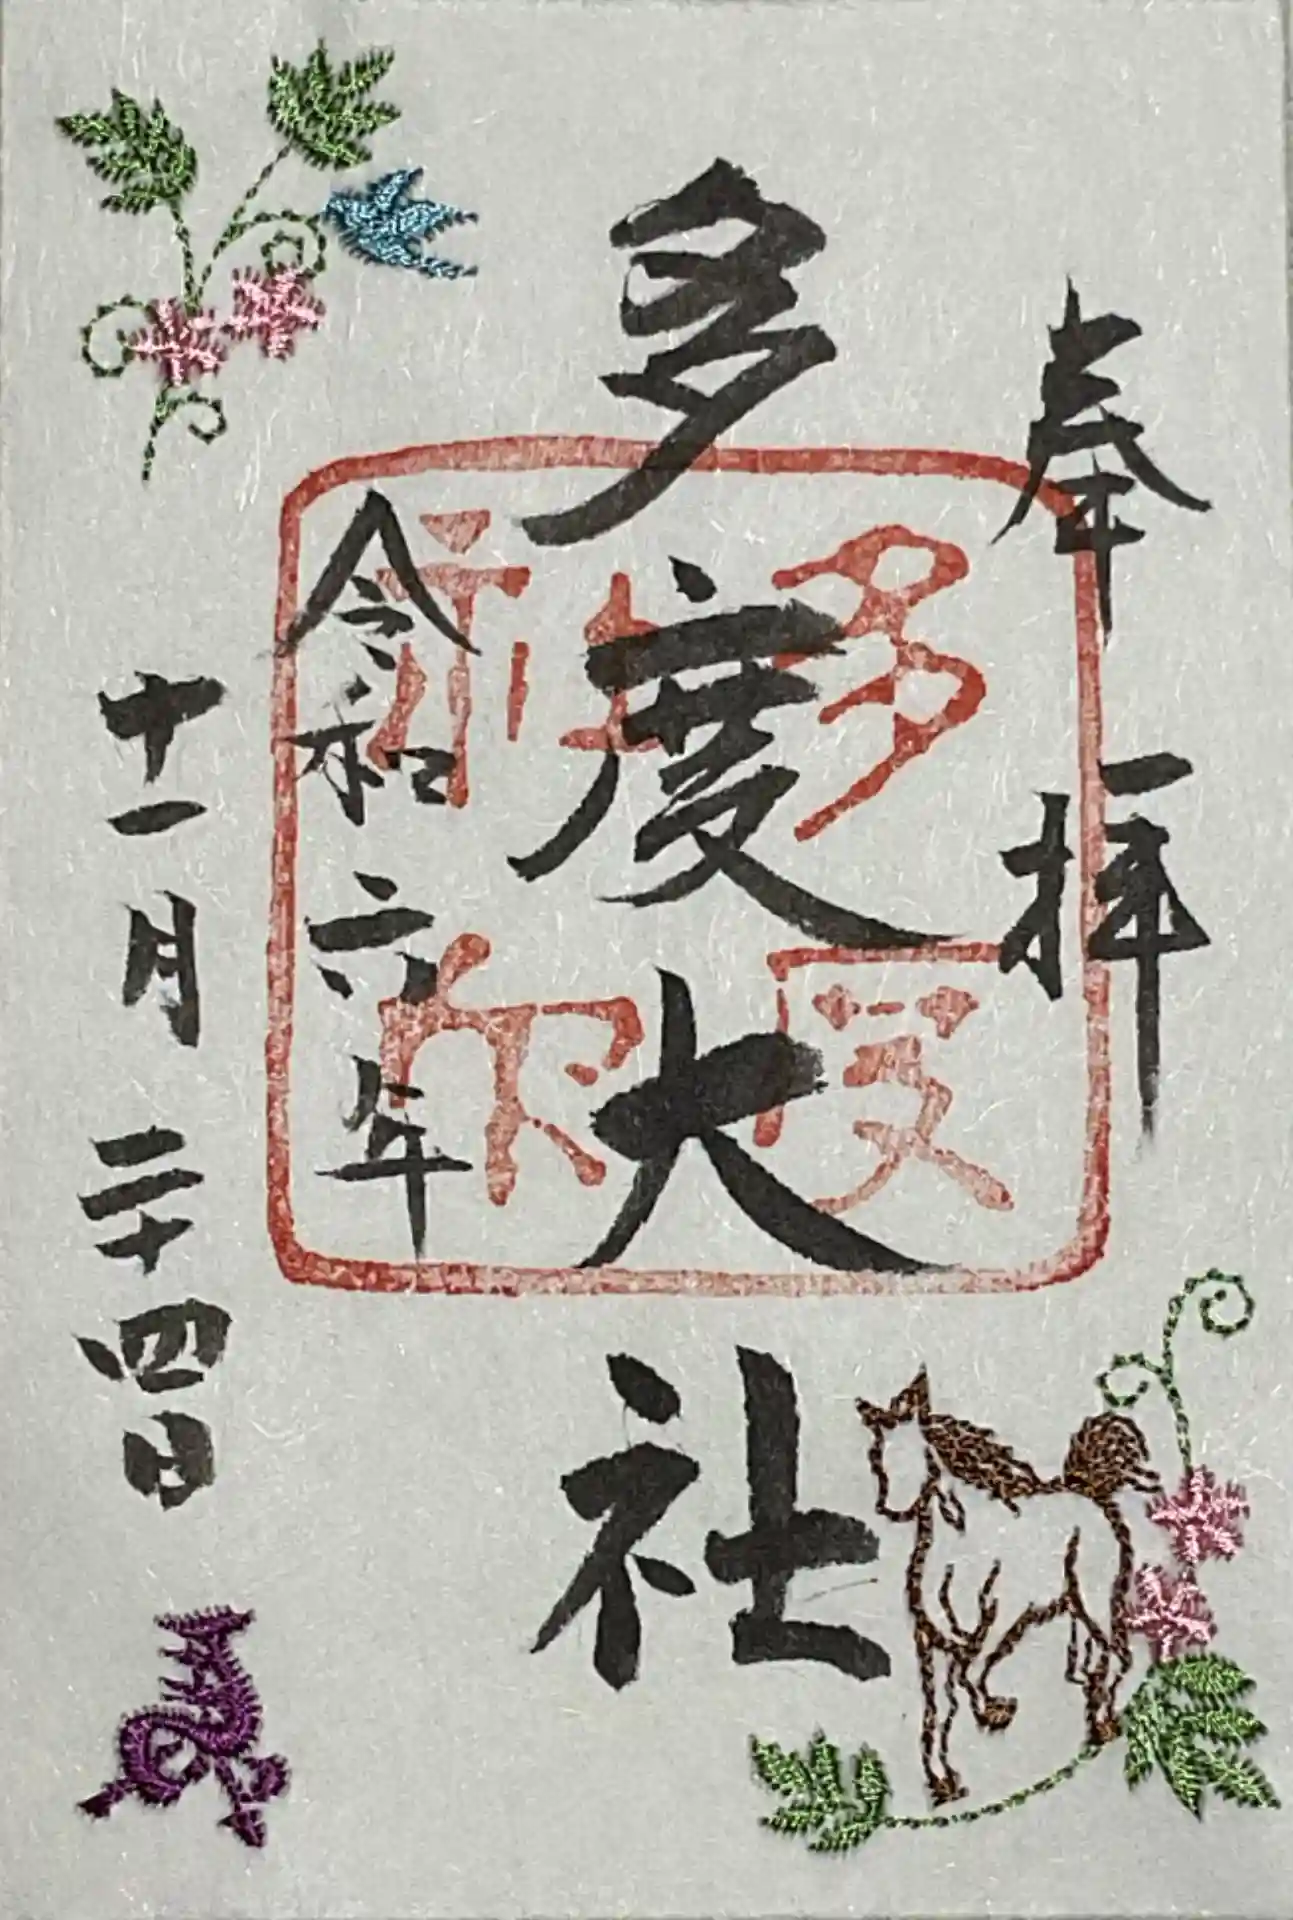 奉拝
多度大社
多度神印
令和六年
十一月二十四日